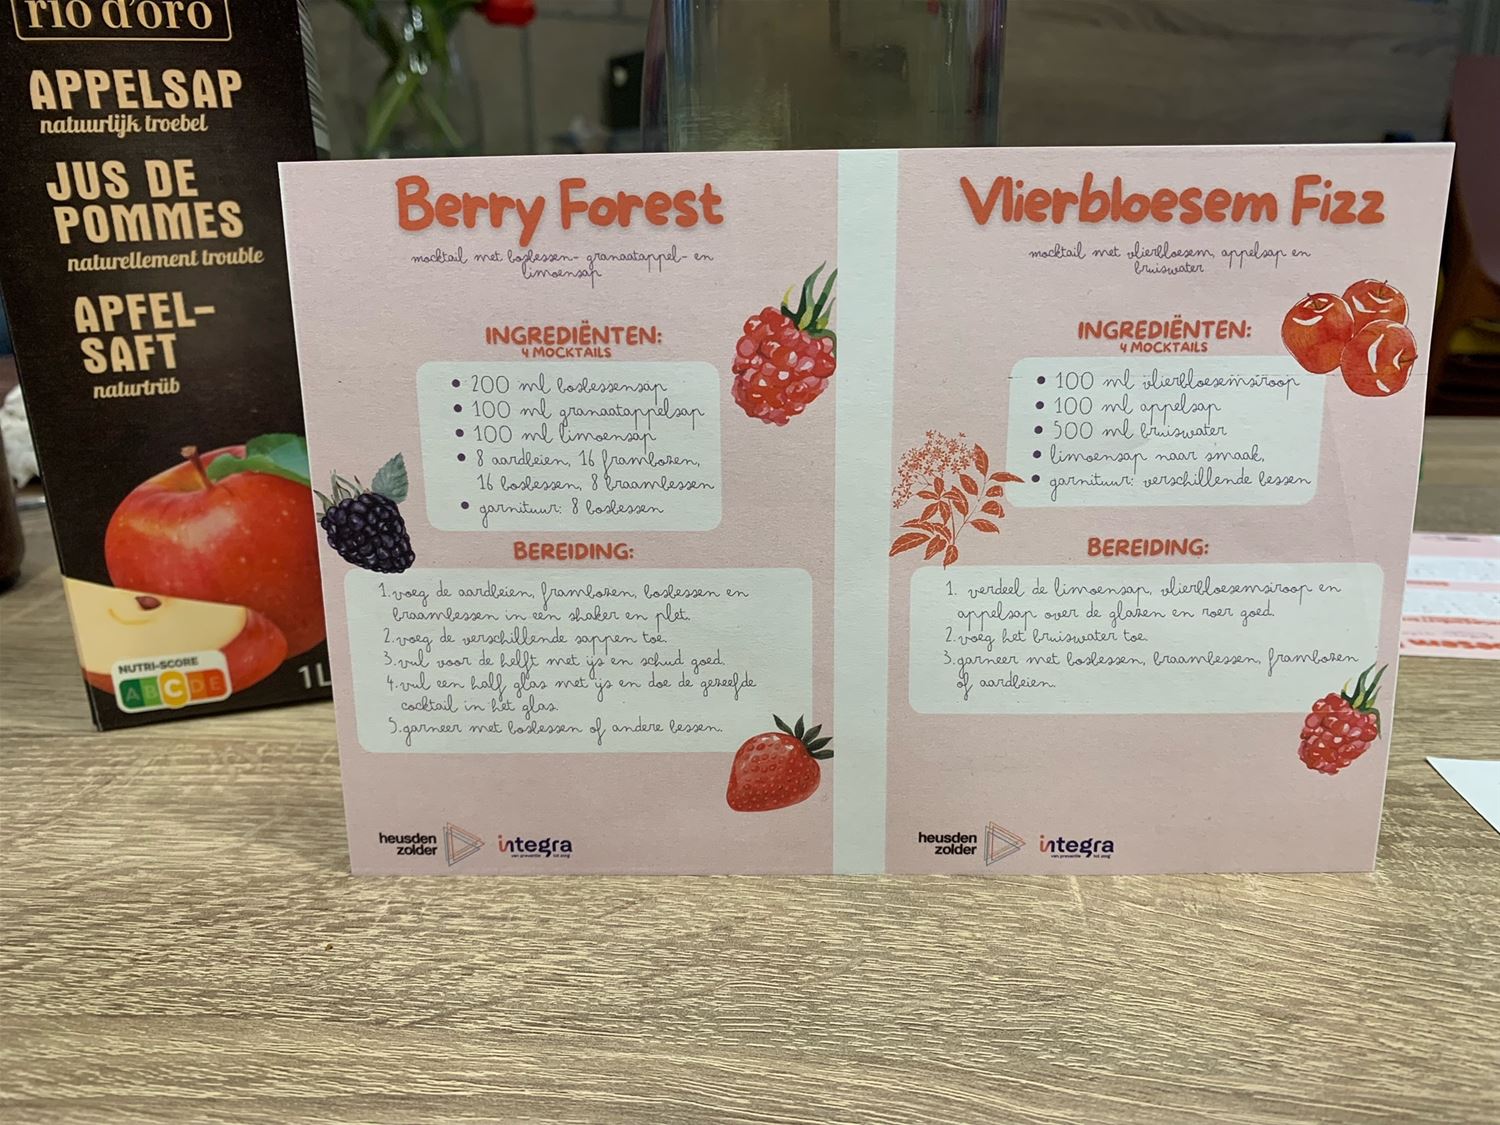 rio d'oro
APPELSAP
natuurlijk troebel
JUS DE
POMMES
naturellement trouble
APFEL-
SAFT
naturtrüb
NUTRI-SCORE
A B C D E
1L
Berry Forest
mocktail met bosbessen- granaatappel- en
limoensap
INGREDIËNTEN:
4 MOCKTAILS
• 200 ml bosbessensap
• 100 ml granaatappelsap
• 100 ml limoensap
• 8 aardbeien, 16 frambozen,
16 bosbessen, 8 braambessen
• garnituur: 8 bosbessen
BEREIDING:
1. voeg de aardbeien, frambozen, bosbessen en
braambessen in een shaker en plet.
2. voeg de verschillende sappen toe.
3. vul voor de helft met ijs en schud goed.
4. vul een half glas met ijs en doe de gezeefde
cocktail in het glas.
5. garneer met bosbessen of andere bessen.
heusden
zolder
integra
van preventie tot zorg
Vlierbloesem Fizz
mocktail met vlierbloesem, appelsap en
bruiswater
INGREDIËNTEN:
4 MOCKTAILS
• 100 ml vlierbloesemsiroop
• 100 ml appelsap
• 500 ml bruiswater
• limoensap naar smaak,
• garnituur: verschillende bessen
BEREIDING:
1. verdeel de limoensap, vlierbloesemsiroop en
appelsap over de glazen en roer goed.
2. voeg het bruiswater toe.
3. garneer met bosbessen, braambessen, frambozen
of aardbeien.
heusden
zolder
integra
van preventie tot zorg